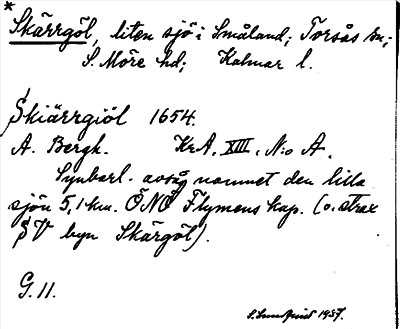 * Skärrgöl, liten sjö i Småland; Torsås sn;
S. Möre hd; Kalmar l.
Skiärrgiöl 1654.
A. Bergh. KrA. XIII. N:o A.
Synbarl. avsåg namnet den lilla
sjön 5,1 km. ÖNÖ Flymens kap. (o. strax
SV byn Skärgöl).
G. 11.
S. Lundquist 1937.